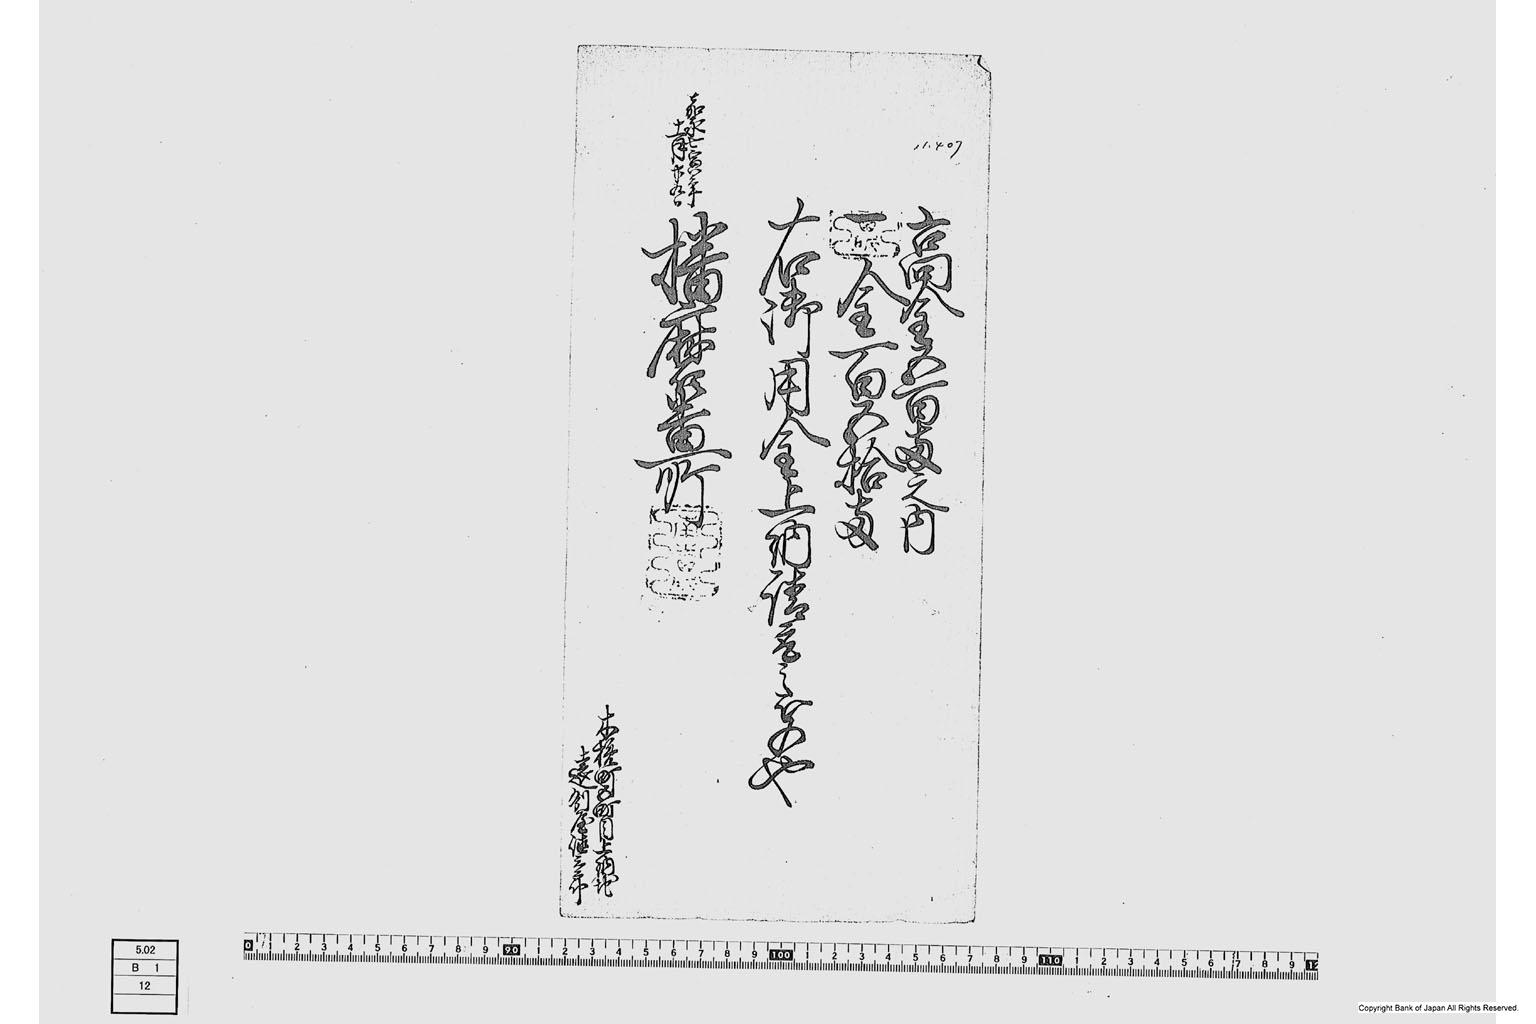 11.407
高金五百両之内
一金百五拾両
右御用金上納請取之もの也
嘉永七寅年
十一月廿九日
播磨
町
木挽町五町目上納地
遠州屋
5.02
B 1
12
0 1 2 3 4 5 6 7 8 9 90 1 2 3 4 5 6 7 8 9 100 1 2 3 4 5 6 7 8 9 110 1 2 3 4 5 6 7 8 9 12
Copyright Bank of Japan All Rights Reserved.